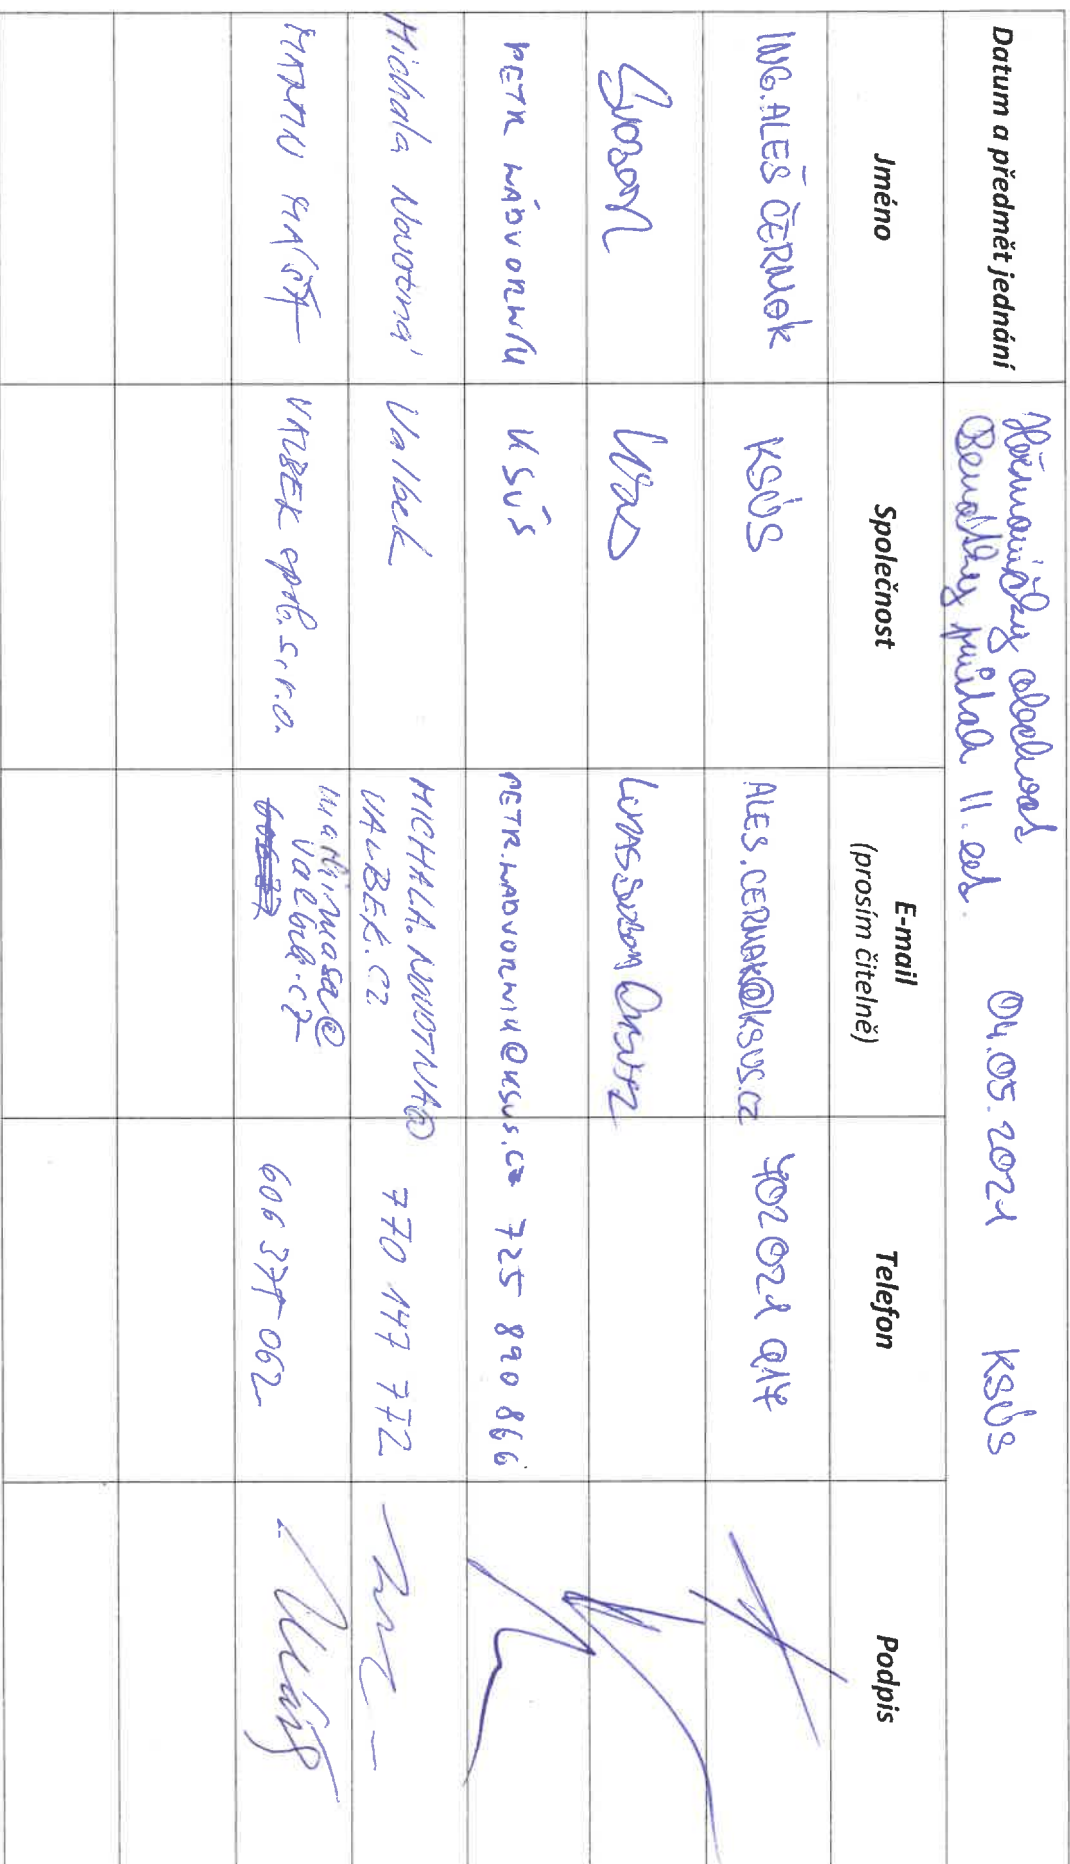 Datum a předmět jednání
Heřmaničky obchvat 04.05.2021 KSÚS
Benátky průtah II. et.
Jméno Společnost E-mail (prosím čitelně) Telefon Podpis
ING. ALEŠ ČERMAK KSÚS ALES.CERMAK@KSUS.CZ 702 021 917
Svoboda
PETR NÁDVORNÍK KSÚS PETR.NADVORNIK@KSUS.CZ 725 890 866
Michala Novotná Valbek MICHALA.NOVOTNA@
VALBEK.CZ 770 147 772
MARTIN MÁŠA VALBEK spol. s.r.o. martin.masa@
valbek.cz 606 377 062